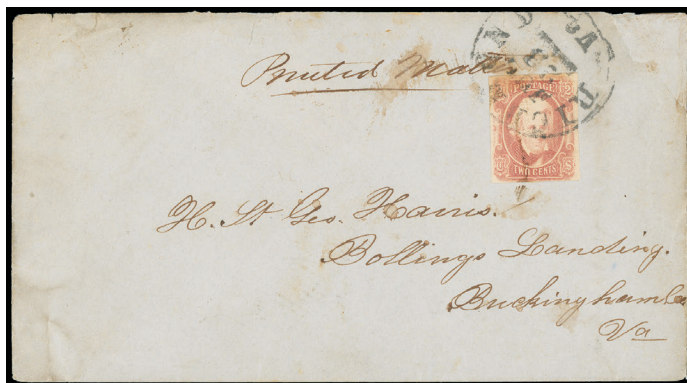 Printed Matt
POSTAGE
2
TWO CENTS
H. St Geo. Harris.
Bollings Landing.
Buckingham Co
Va